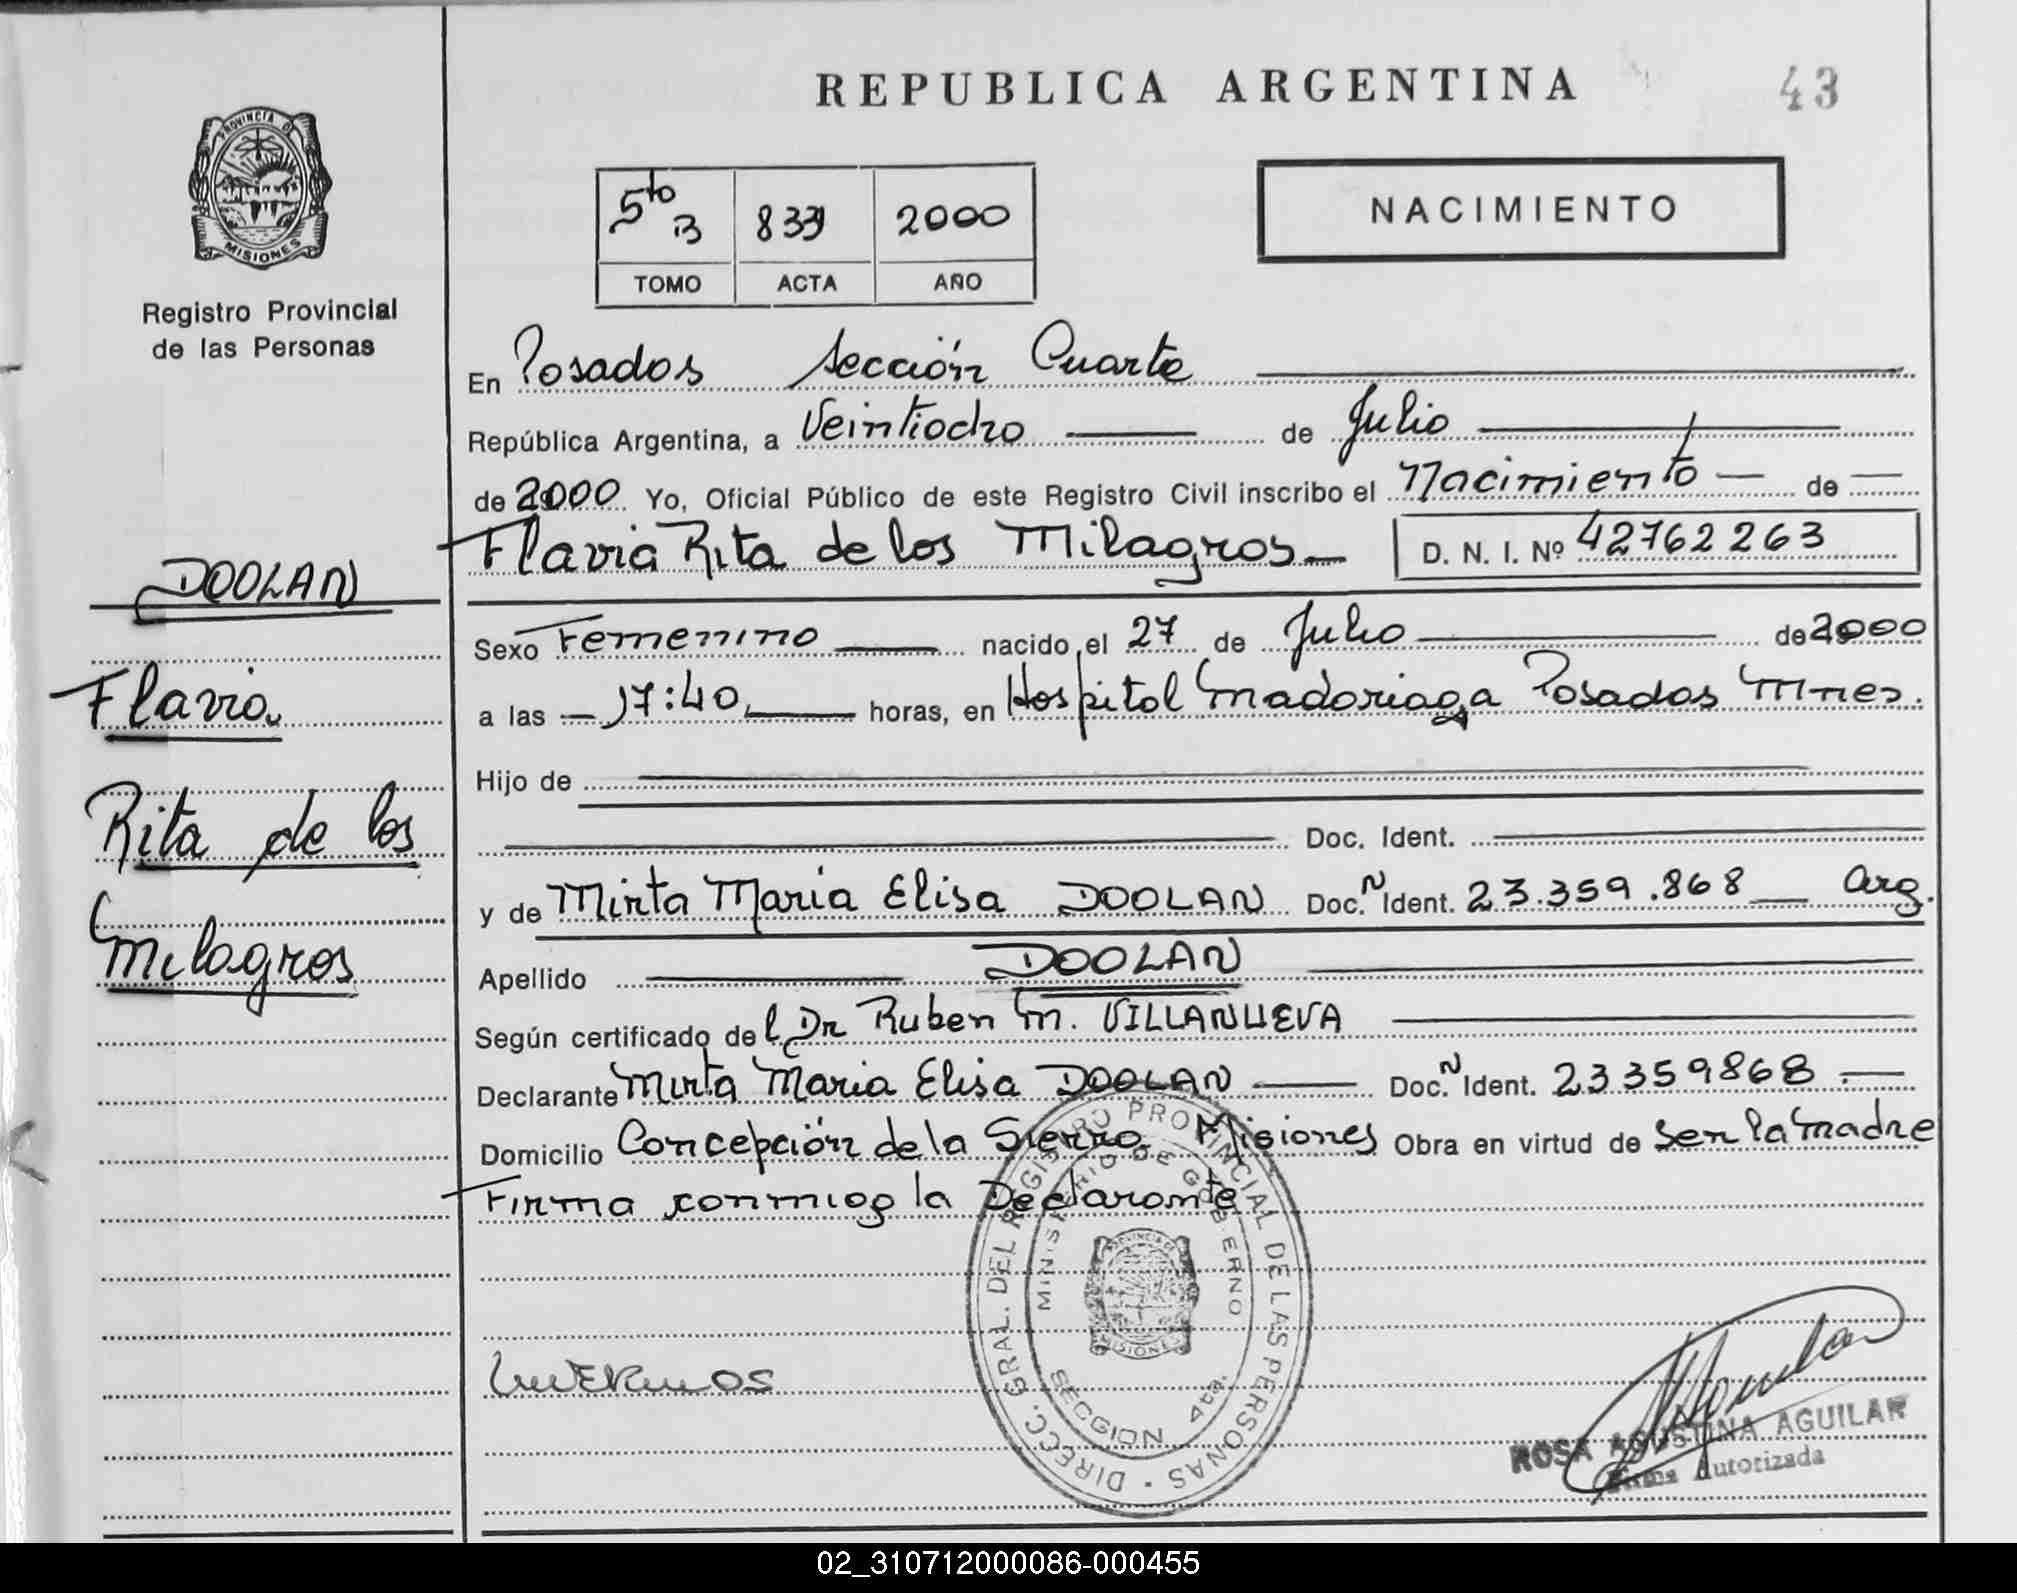 REPUBLICA ARGENTINA
43
PROVINCIA DE
MISIONES
Registro Provincial
de las Personas
5to B 833 2000
TOMO ACTA AÑO
NACIMIENTO
En Posadas Sección Cuarta
República Argentina, a Veintiocho de Julio
de 2000 Yo, Oficial Público de este Registro Civil inscribo el Nacimiento de
Flavia Rita de los Milagros D. N. I. Nº 42762263
DOOLAN
Flavia
Rita de los
Milagros
Sexo Femenino nacido el 27 de Julio de 2000
a las 17:40 horas, en Hospital Madariaga Posadas Mnes.
Hijo de
Doc. Ident.
y de Mirta Maria Elisa DOOLAN Doc. N Ident. 23.359.868 Arg.
Apellido DOOLAN
Según certificado del Dr Ruben M. VILLANUEVA
Declarante Mirta Maria Elisa DOOLAN Doc. N Ident. 23359868
Domicilio Concepción de la Sierra Misiones Obra en virtud de ser la madre
Firma conmigo la Declarante
DIRECC. GRAL. DEL REGISTRO PROVINCIAL DE LAS PERSONAS
MINISTERIO DE GOBIERNO
SECCION 4ta.
ROSA AGUSTINA AGUILAR
Firma Autorizada
02_310712000086-000455